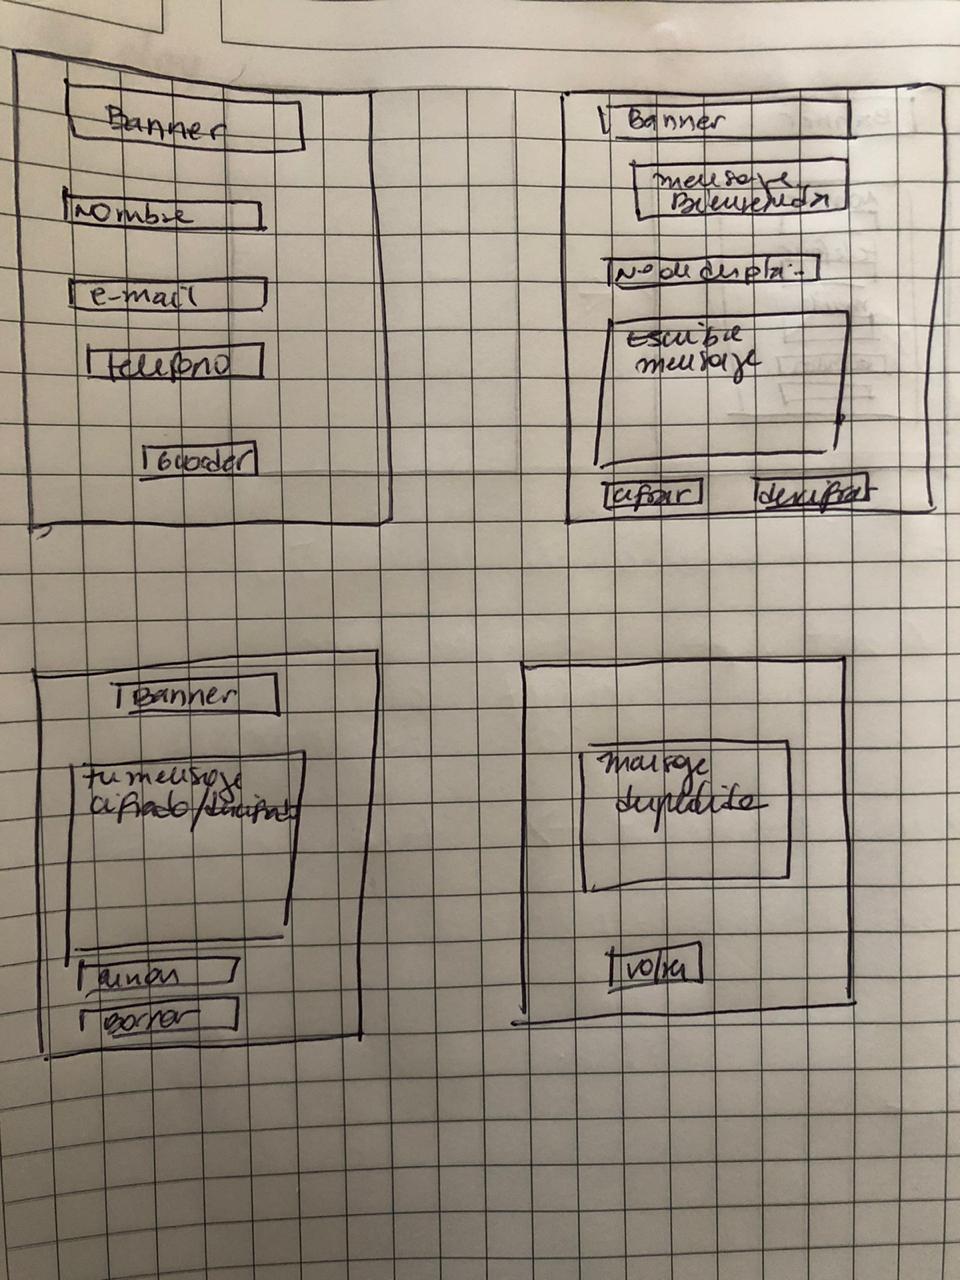 Banner
Nombre
e-mail
Telefono
Guardar
Banner
mensaje
Bienvenida
No de despla..
Escribe
mensaje
cifrar
descifrar
Banner
tu mensaje
cifrado/descifrado
Borrar
mensaje
despedida
volver